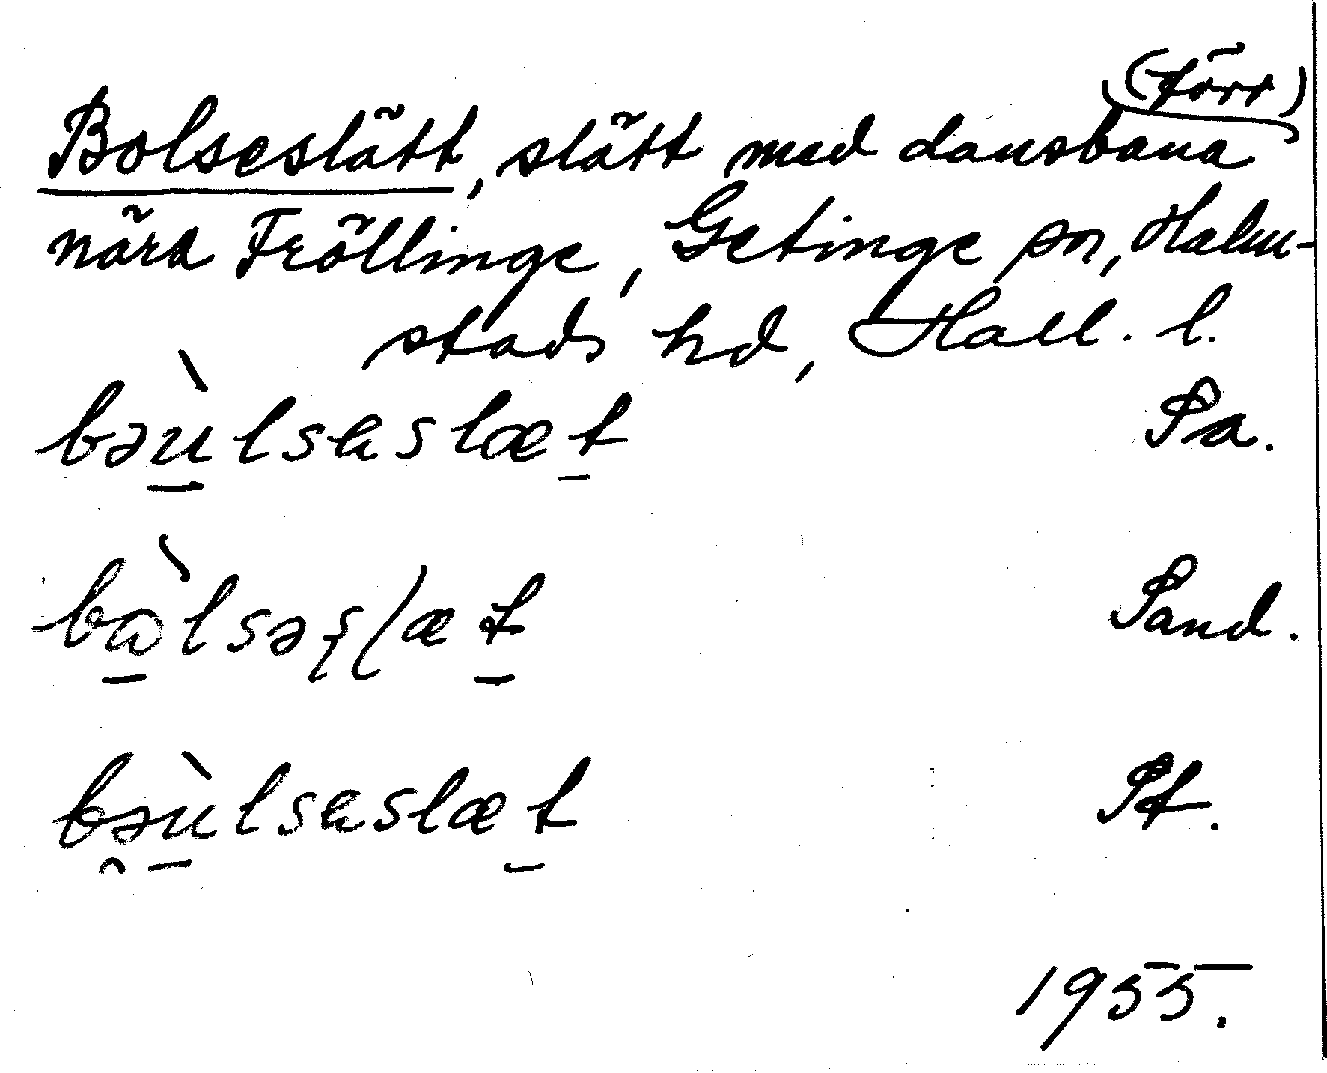 (förr)
Bolseslätt, slätt med dansbana
nära Fröllinge, Getinge sn, Halm-
stads hd, Hall. l.
bəù̠lsaslæt̠ Pa.
bɑ̠̀lsəslæt̠ Sand.
bə̯ù̠lsaslæt̠ Pf.
1955.